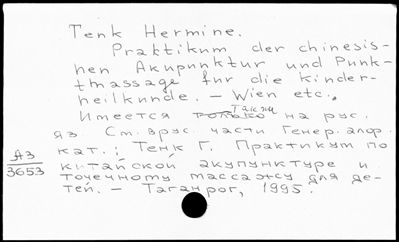 Tenk Hermine.
Praktikum der chinesis-
hen Akupunktur und Punk-
tmassage fur die Kinder-
heilkunde. - Wien etc.,
Имеется только также на рус.
яз. См. в рус. части Генер. алф.
кат.: Тенк Г. Практикум по
АЗ
3653
китайской акупунктуре и
точечному массажу для де-
тей. - Таганрог, 1995.